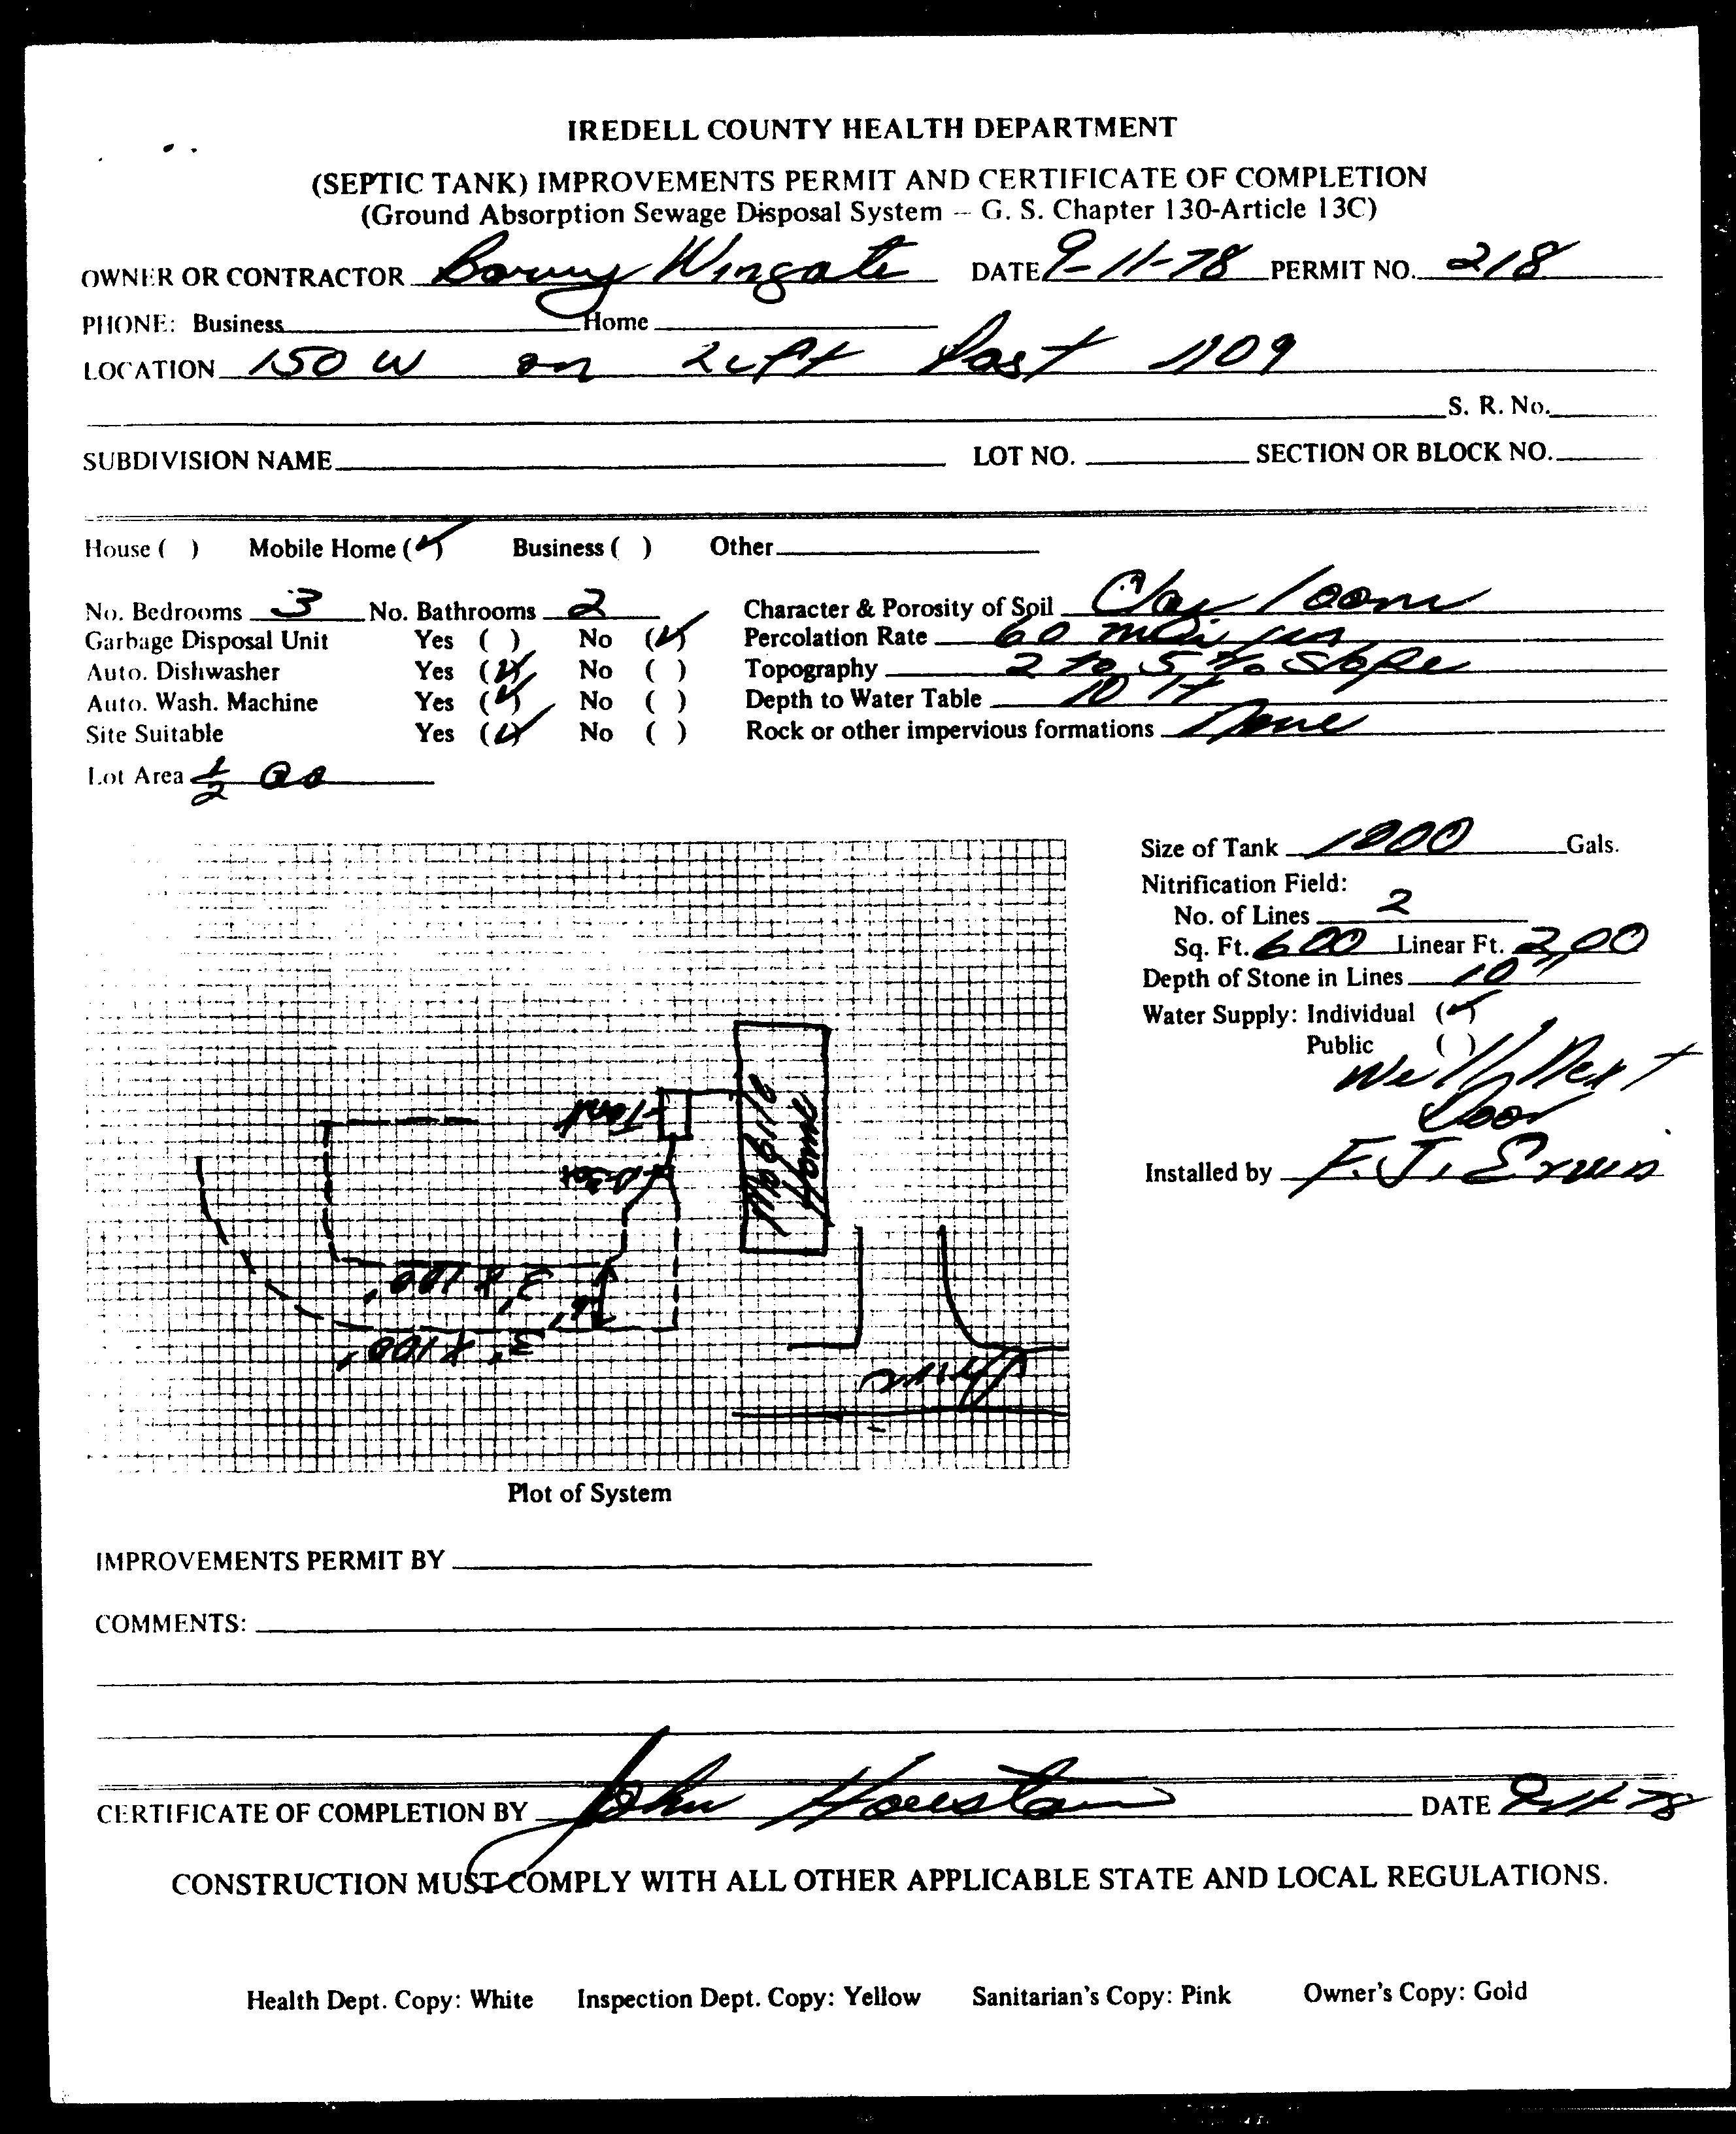 IREDELL COUNTY HEALTH DEPARTMENT
(SEPTIC TANK) IMPROVEMENTS PERMIT AND CERTIFICATE OF COMPLETION
(Ground Absorption Sewage Disposal System -- G. S. Chapter 130-Article 13C)
OWNER OR CONTRACTOR Wingate DATE 9-11-78 PERMIT NO. 218
PHONE: Business Home
LOCATION 150 W on Left Past 1109
S. R. No.
SUBDIVISION NAME LOT NO. SECTION OR BLOCK NO.
House ( ) Mobile Home (✓) Business ( ) Other
No. Bedrooms 3 No. Bathrooms 2 Character & Porosity of Soil Clay loam
Garbage Disposal Unit Yes ( ) No (✓) Percolation Rate 60
Auto. Dishwasher Yes (✓) No ( ) Topography 2 to 5 % Slope
Auto. Wash. Machine Yes (✓) No ( ) Depth to Water Table 10 ft
Site Suitable Yes (✓) No ( ) Rock or other impervious formations None
Lot Area 1/2
Size of Tank 1000 Gals.
Nitrification Field:
No. of Lines 2
Sq. Ft. 600 Linear Ft. 200
Depth of Stone in Lines 10"
Water Supply: Individual (✓)
Public ( )
Well Next
Door
Installed by F. J. Erwin
Mobile
Home
Tank
D-Box
3' x 100'
6'
3' x 100'
Drive
Plot of System
IMPROVEMENTS PERMIT BY
COMMENTS:
CERTIFICATE OF COMPLETION BY John Houston DATE 9-11-78
CONSTRUCTION MUST COMPLY WITH ALL OTHER APPLICABLE STATE AND LOCAL REGULATIONS.
Health Dept. Copy: White Inspection Dept. Copy: Yellow Sanitarian's Copy: Pink Owner's Copy: Gold